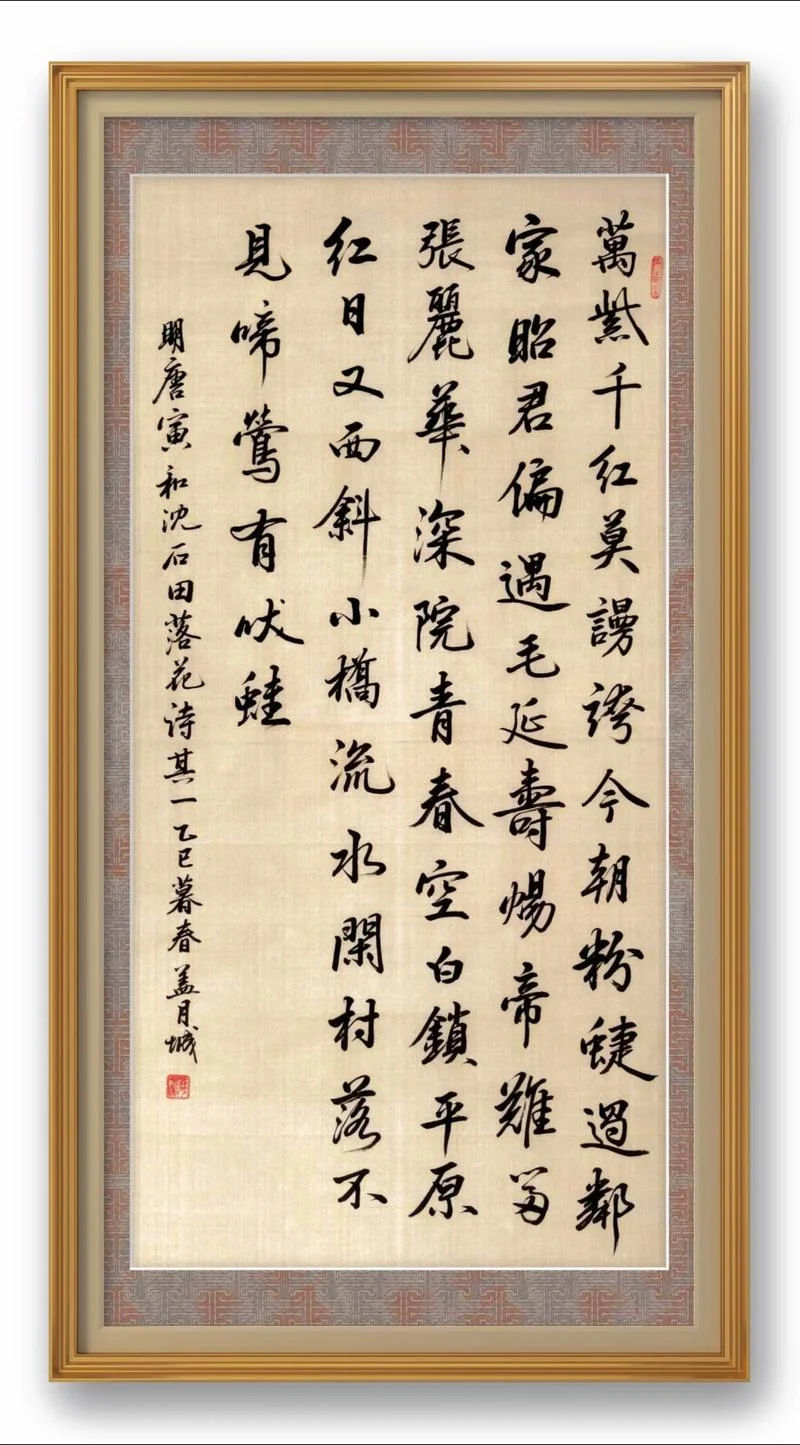 萬紫千紅莫謾誇今朝粉蜨過鄰
家昭君偏遇毛延壽煬帝難留
張麗華深院青春空白鎖平原
紅日又西斜小橋流水閑村落不
見啼鶯有吠蛙
明唐寅和沈石田落花诗其一乙巳暮春盖月城